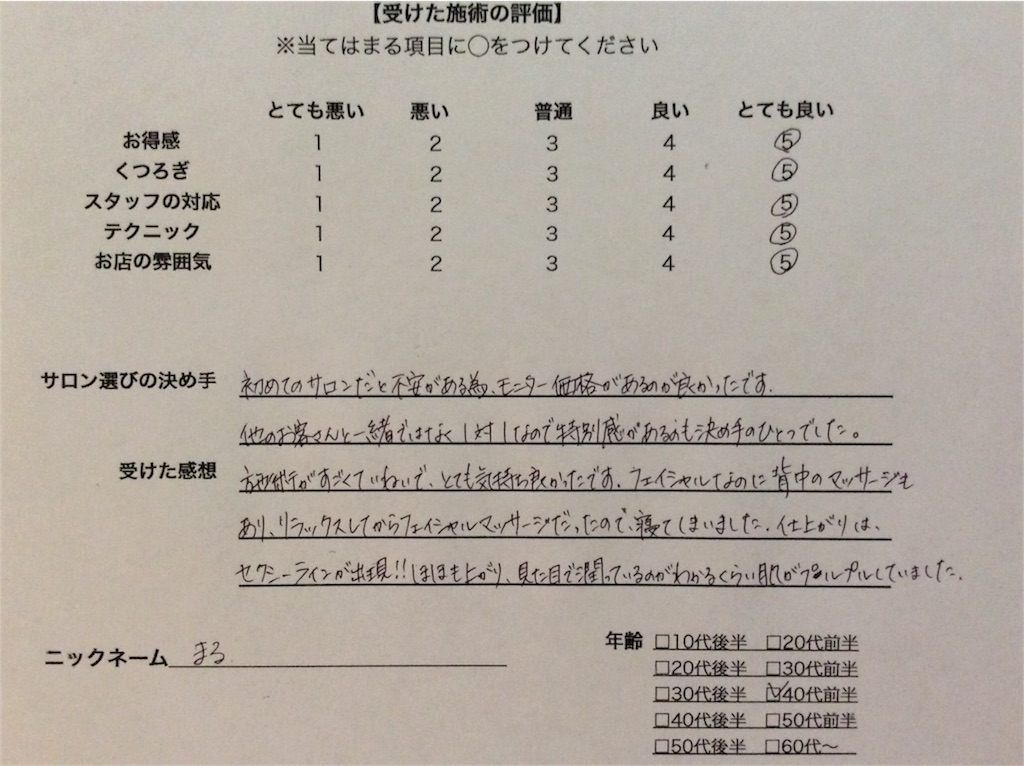 【受けた施術の評価】
※当てはまる項目に○をつけてください
とても悪い 悪い 普通 良い とても良い
お得感 1 2 3 4 5
くつろぎ 1 2 3 4 5
スタッフの対応 1 2 3 4 5
テクニック 1 2 3 4 5
お店の雰囲気 1 2 3 4 5
サロン選びの決め手 初めてのサロンだと不安がある為、モニター価格があるのが良かったです。
他のお客さんと一緒ではなく1対1なので特別感があるのも決め手のひとつでした。
受けた感想 施術がすごくていねいで、とても気持ち良かったです。フェイシャルなのに背中のマッサージも
あり、リラックスしてからフェイシャルマッサージだったので、寝てしまいました。仕上がりは、
セクシーラインが出現!!ほほも上がり、見た目で潤っているのがわかるくらい肌がプルプルしていました。
ニックネーム まる
年齢 □10代後半 □20代前半
□20代後半 □30代前半
□30代後半 ☑40代前半
□40代後半 □50代前半
□50代後半 □60代〜